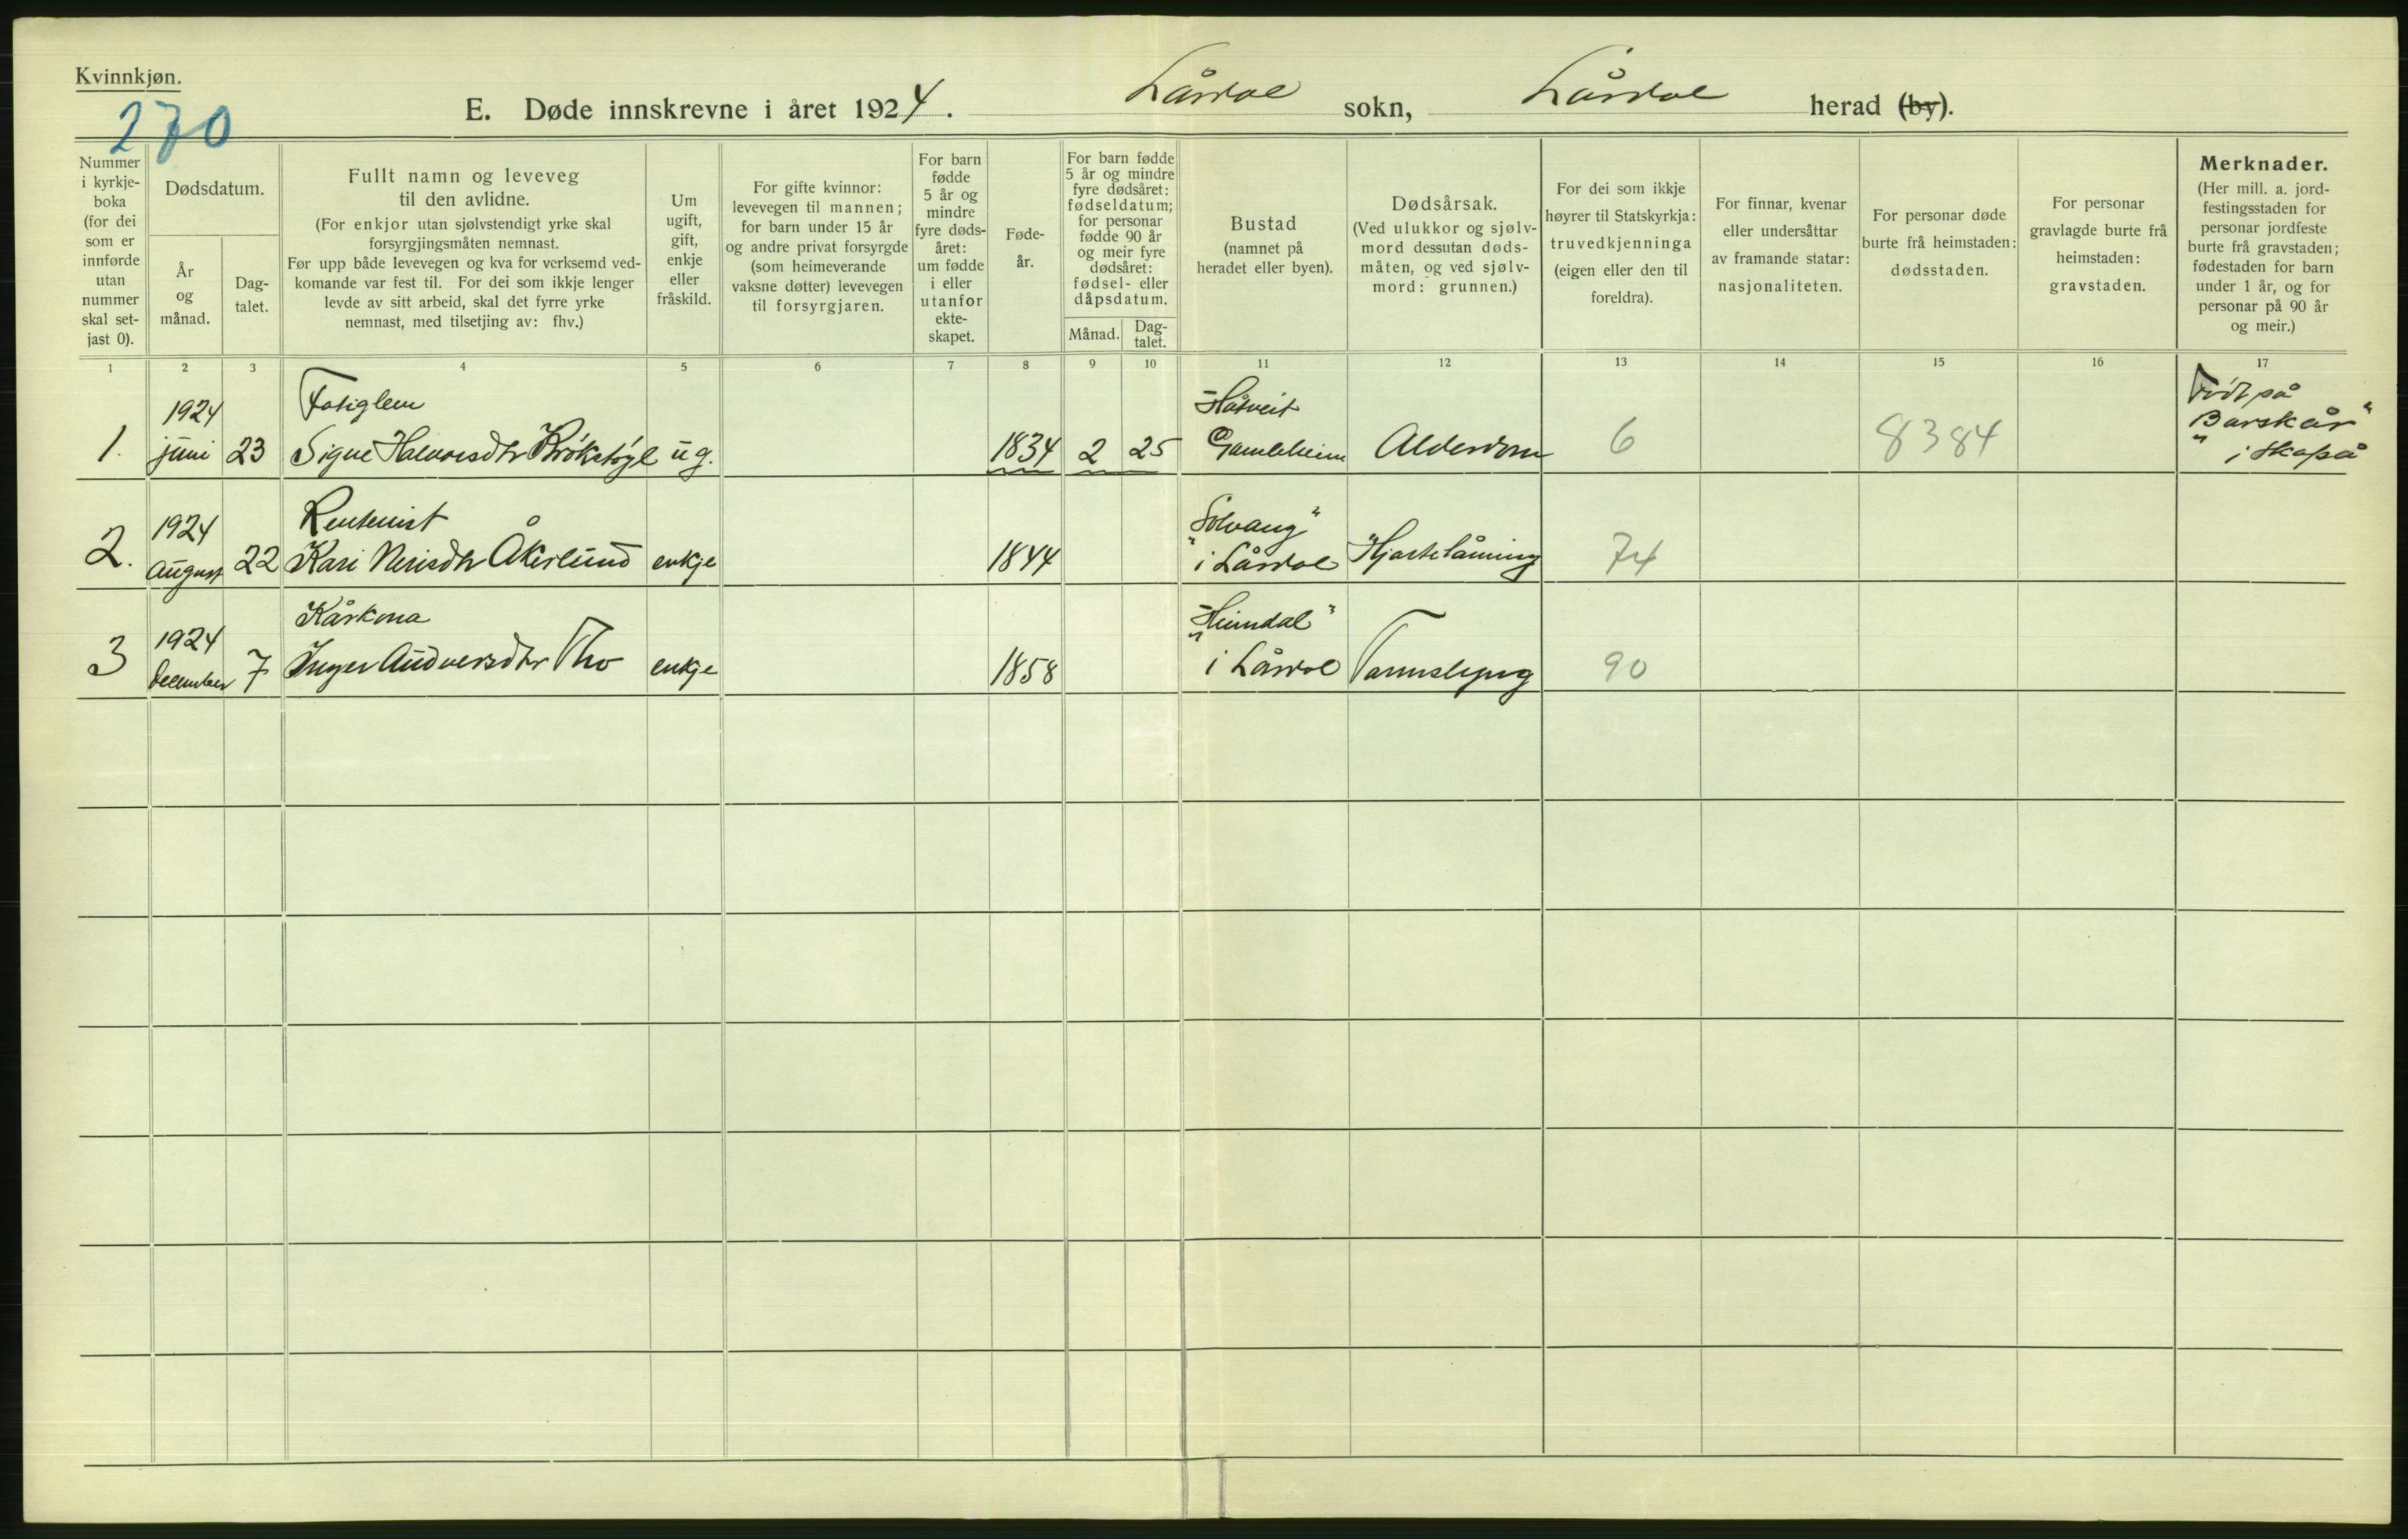 Kvinnkjøn.
270
E. Døde innskrevne i året 1924. Lårdal sokn, Lårdal herad (by).
Nummer i kyrkje-boka (for dei som er innførde utan nummer skal set-jast 0).
Dødsdatum.
År og månad.
Dag-talet.
Fullt namn og leveveg til den avlidne.
(For enkjor utan sjølvstendigt yrke skal forsyrgjingsmåten nemnast.
Før upp både levevegen og kva for verksemd ved-komande var fest til. For dei som ikkje lenger levde av sitt arbeid, skal det fyrre yrke nemnast, med tilsetjing av: fhv.)
Um ugift, gift, enkje eller fråskild.
For gifte kvinnor: levevegen til mannen; for barn under 15 år og andre privat forsyrgde (som heimeverande vaksne døtter) levevegen til forsyrgjaren.
For barn fødde 5 år og mindre fyre døds-året: um fødde i eller utanfor ekte-skapet.
Føde-år.
For barn fødde 5 år og mindre fyre dødsåret: fødseldatum; for personar fødde 90 år og meir fyre dødsåret: fødsel- eller dåpsdatum.
Månad.
Dag-talet.
Bustad (namnet på heradet eller byen).
Dødsårsak. (Ved ulukkor og sjølv-mord dessutan døds-måten, og ved sjølv-mord: grunnen.)
For dei som ikkje høyrer til Statskyrkja: truvedkjenninga (eigen eller den til foreldra).
For finnar, kvenar eller undersåttar av framande statar: nasjonaliteten.
For personar døde burte frå heimstaden: dødsstaden.
For personar gravlagde burte frå heimstaden: gravstaden.
Merknader.
(Her mill. a. jord-festingsstaden for personar jordfeste burte frå gravstaden; fødestaden for barn under 1 år, og for personar på 90 år og meir.)
1 2 3 4 5 6 7 8 9 10 11 12 13 14 15 16 17
1924 Fatiglem Håtveit Født på
1. juni 23 Signe Halvorsdtr ug. 1834 2 25 Gamleheim Alderdom 6 8384 "Barskår"
i Skafså
1924 Rentenist "Solvang"
2. August 22 Kari Nerisdtr Åkerlund enkje 1844 i Lårdal Hjartelåming 74
1924 Kårkona "Heimdal"
3 December 7 Inger Audversdtr Tho enkje 1858 i Lårdal Tarmslyng 90